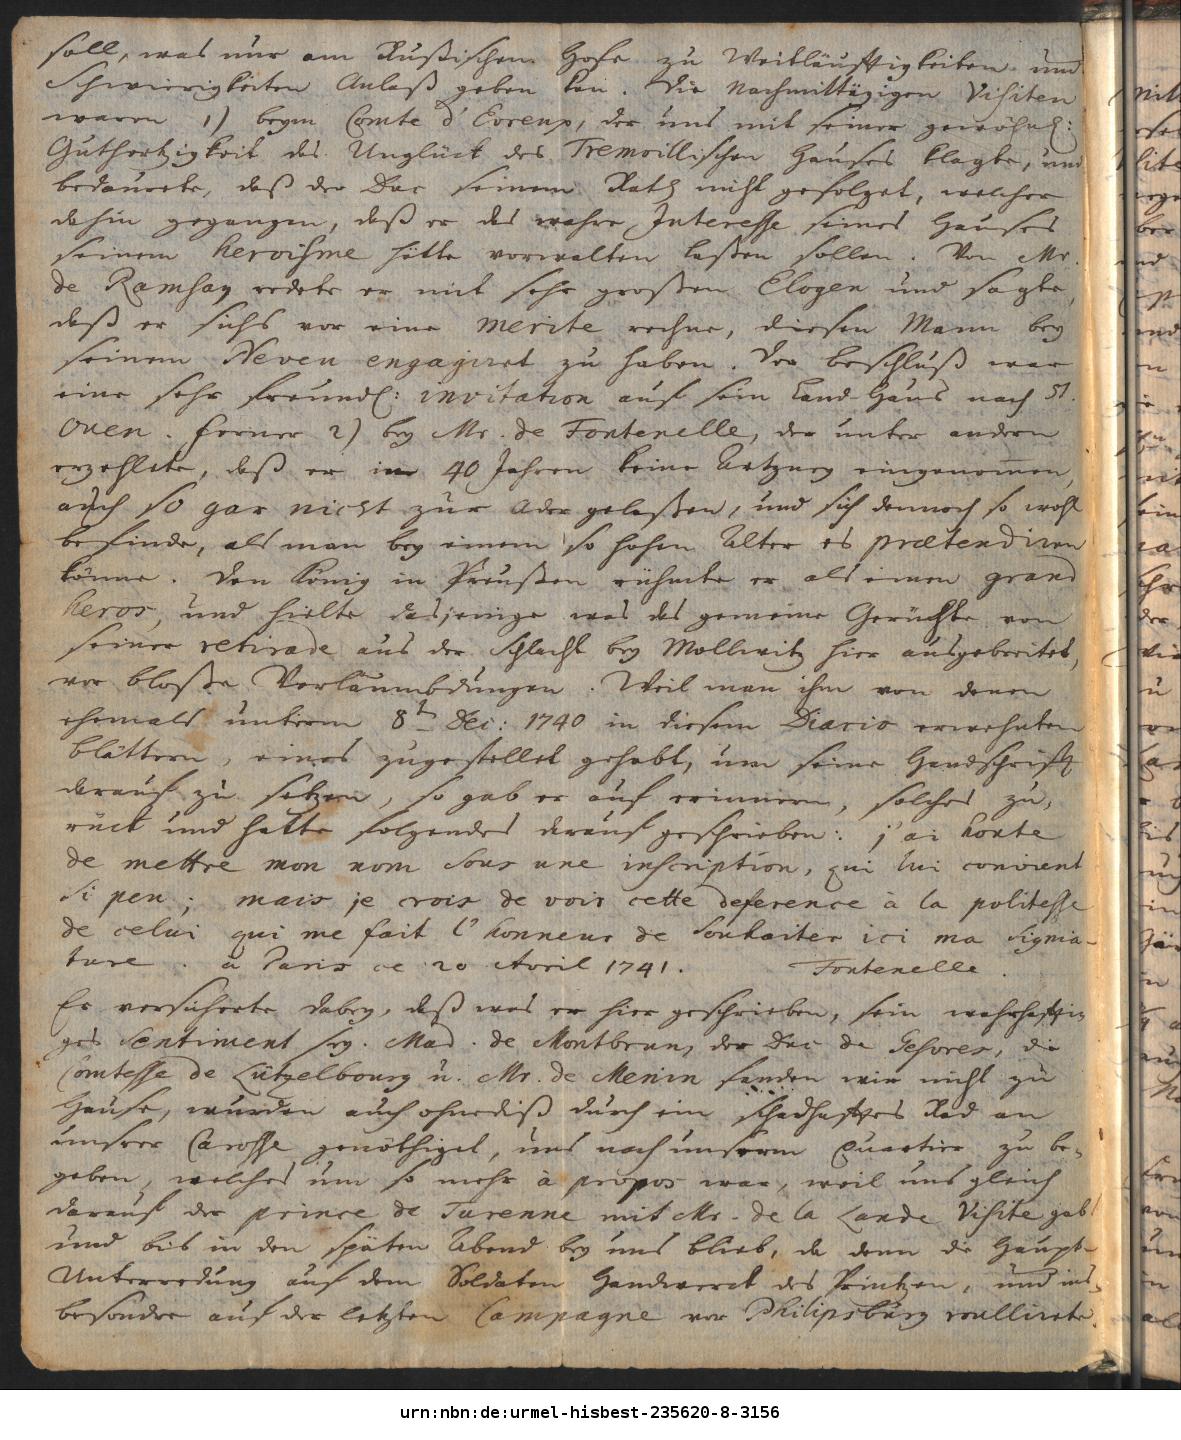 soll, was nur am Rußischen Hofe zu Weitläufftigkeiten und
Schwierigkeiten Anlaß geben kan. Die Nachmittägigen Visiten
waren 1) beym Comte d'Evreux, der uns mit seiner gewöhnl:
Guthertzigkeit das Unglück des Tremoillischen Hauses klagte, und
bedaurete, daß der Duc seinem Rath nicht gefolget, welcher
dahin gegangen, daß er das wahre Interesse seines Hauses
seinem heroisme hätte vorwalten laßen sollen. Von Mr.
de Ramsay redete er mit sehr großen Elogen und sagte,
daß er sichs vor eine merite rechne, diesen Mann bey
seinem Neveu engagiret zu haben. Der Beschluß war
eine sehr freundl: invitation auf sein Land-Haus nach St.
Ouen. ferner 2) bey Mr. de Fontenelle, der unter andern
erzehlete, daß er in 40 Jahren keine Artzney eingenommen,
auch so gar nicht zur Ader gelaßen, und sich dennoch so wohl
befinde, als man bey einem so hohen Alter es prætendiren
könne. Den König in Preußen rühmte er als einen grand
heros, und hielte dasjenige was das gemeine Gerüchte von
seiner retirade aus der Schlacht bey Mollwitz hier ausgebreitet,
vor bloße Verläumbdungen. Weil man ihm von denen
ehemals unterm 8t. Dec: 1740 in diesem Diario erwehnten
Blättern, eines zugestellet gehabt, um seine Handschrifft
darauf zu setzen, so gab er auf erinnern, solches zu,
rück und hatte folgendes darauf geschrieben: j'ai honte
de mettre mon nom sous une inscription, qui lui convient
si peu; mais je crois de voir cette deference à la politesse
de celui qui me fait l'honneur de souhaiter ici ma signia-
ture. à Paris ce 20 Avril 1741. Fontenelle.
Er versicherte dabey, daß was er hier geschrieben, sein wahrhafftig
ges Sentiment sey. Mad. de Montbrun, den Duc de Gesvres, die
Comtesse de Lützelbourg u. Mr. de Menin fanden wir nicht zu
Hause, wurden auch ohnediß durch ein schadhafftes Rad an
unserer Carosse genöthiget, uns nach unserm Quartier zu be-
geben, welches um so mehr à propos war, weil uns gleich
darauf der prince de Turenne mit Mr. de la Lande Visite gab
und bis in den späten Abend bey uns blieb, da denn die Haupt-
Unterredung auf dem Soldaten Handwerck des Printzen, und ins-
besondere auf der letzten Campagne vor Philipsburg roullirete.
urn:nbn:de:urmel-hisbest-235620-8-3156